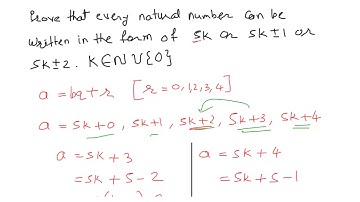 Prove that every natural number can be
written in the form of 5k or 5k±1 or
5k±2. K∈N∪{0}
a = bq+r [r = 0,1,2,3,4]
a = 5k+0, 5k+1, 5k+2, 5k+3, 5k+4
a = 5k+3 a = 5k+4
= 5k+5-2 = 5k+5-1